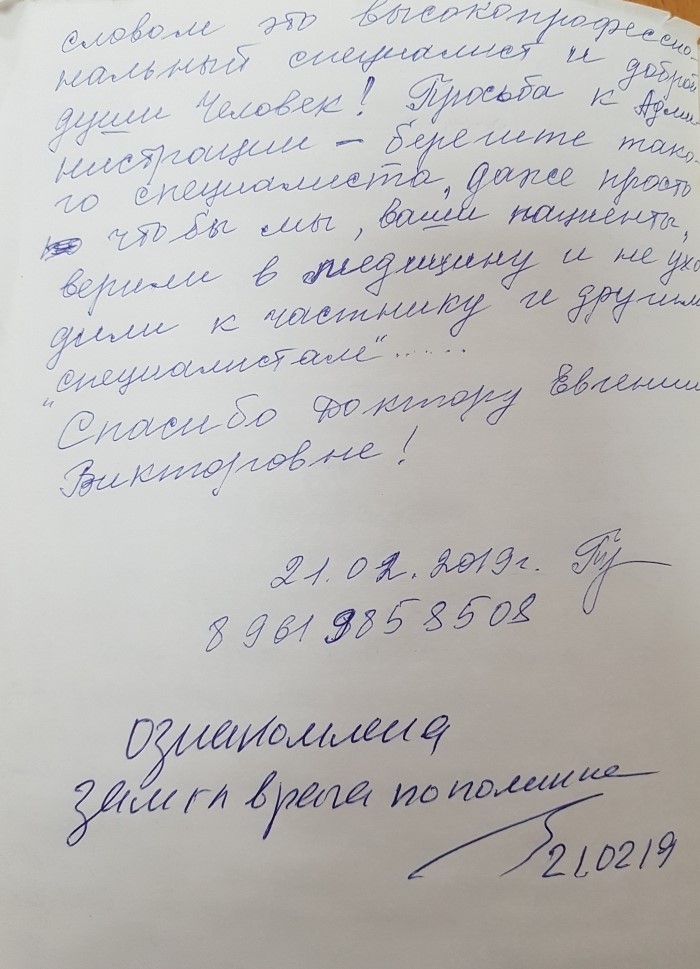 словом это высокопрофессио-
нальный специалист и доброй
души Человек! Просьба к Адми-
нистрации – берегите тако-
го специалиста, даже просто
чтобы мы, ваши пациенты,
верили в медицину и не ухо
дили к частнику и другим
"специалистам"......
Спасибо Доктору Евгении
Викторовне!
21.02.2019г.
89619858508
ознакомлена
зам гл врача по поликлине
210219